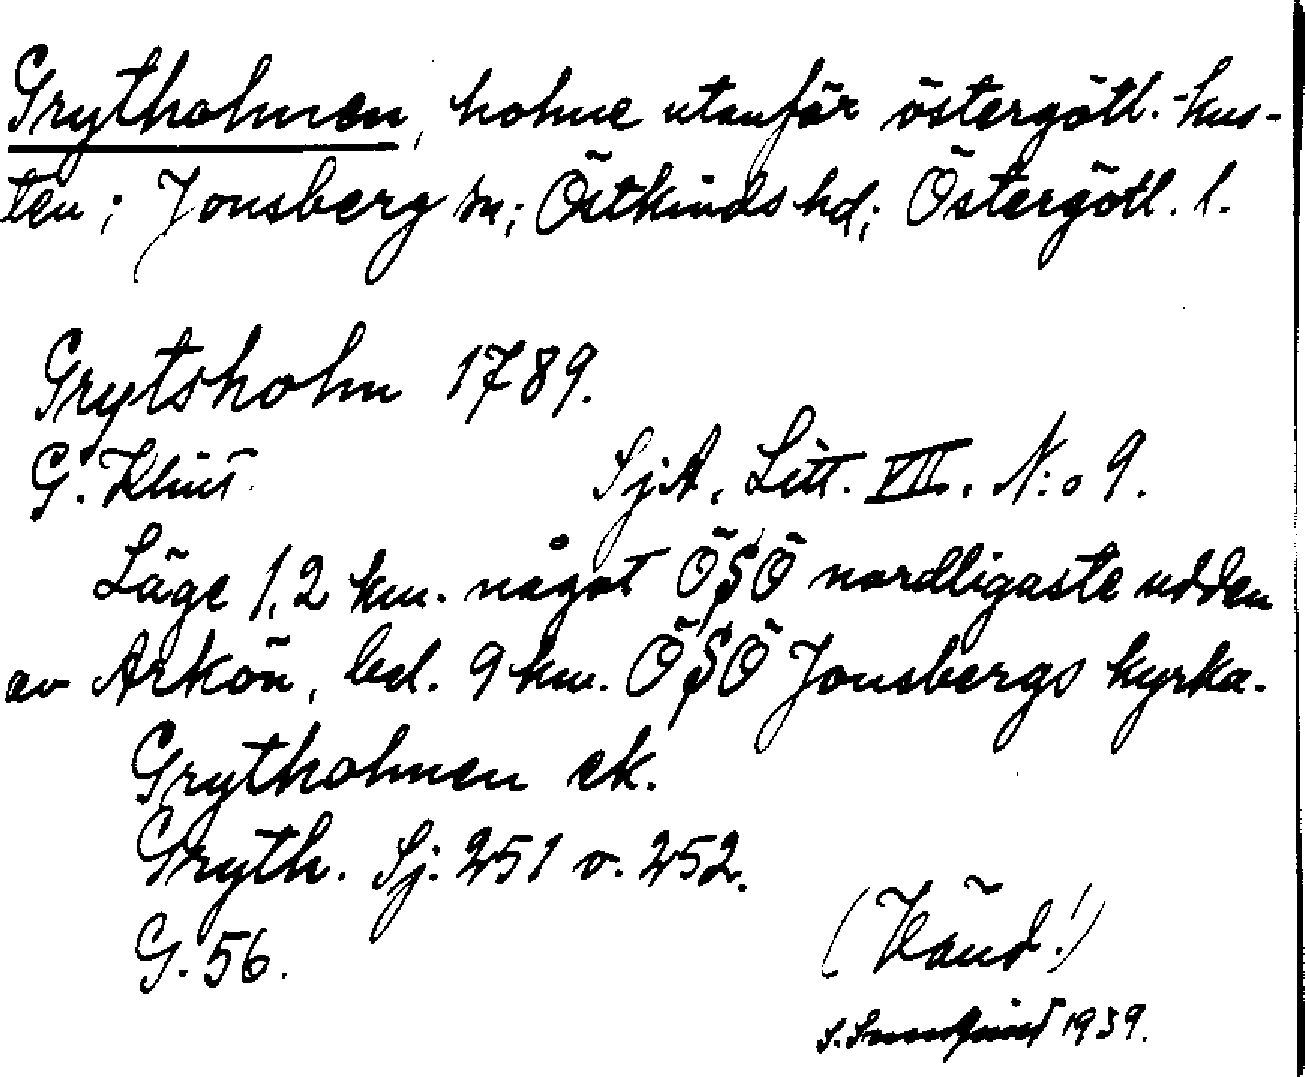 Grytholmen, holme utanför östergötl.-kus-
ten; Jonsberg sn; Östkinds hd; Östergötl. l.
Grytsholm 1789.
G. Klint. SjA. Litt. VII. N:o 9.
Läge 1,2 km. något ÖSÖ nordligaste udden
av Arkön, bel. 9 km. ÖSÖ Jonsbergs kyrka.
Grytholmen ek.
Gryth. Sj. 251 o. 252.
G. 56.
(Vänd!)
1939.